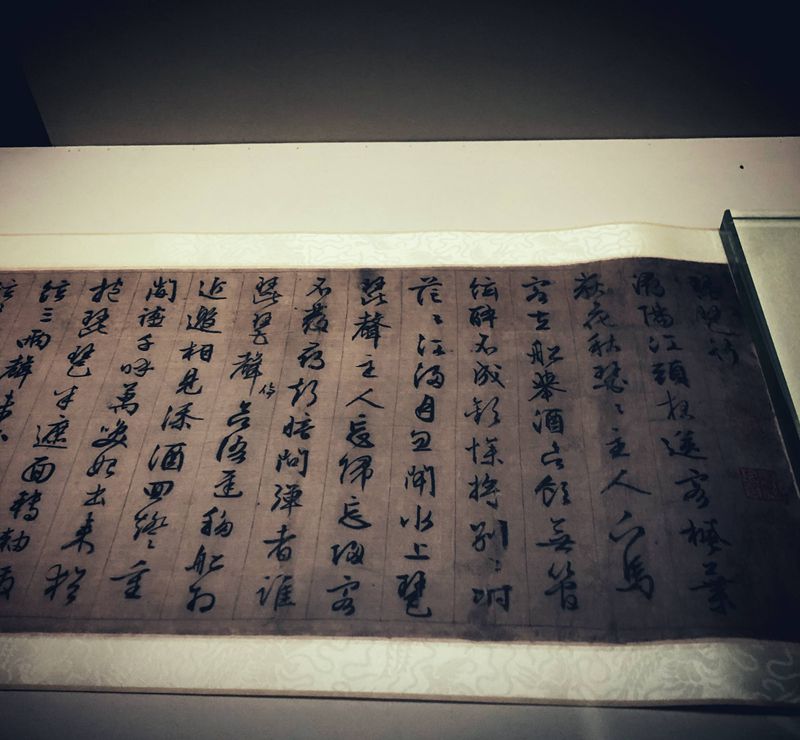 琵琶行
潯陽江頭夜送客楓葉
荻花秋瑟々主人下馬
客在船舉酒欲飲無管
絃醉不成歡慘將別々時
茫々江浸月忽聞水上琵
琶聲主人忘歸忘歸客
不發尋聲暗問彈者誰
琵琶聲停欲語遲移船相
近邀相見添酒回燈重
開宴千呼萬喚始出來猶
抱琵琶半遮面轉軸撥
絃三兩聲未